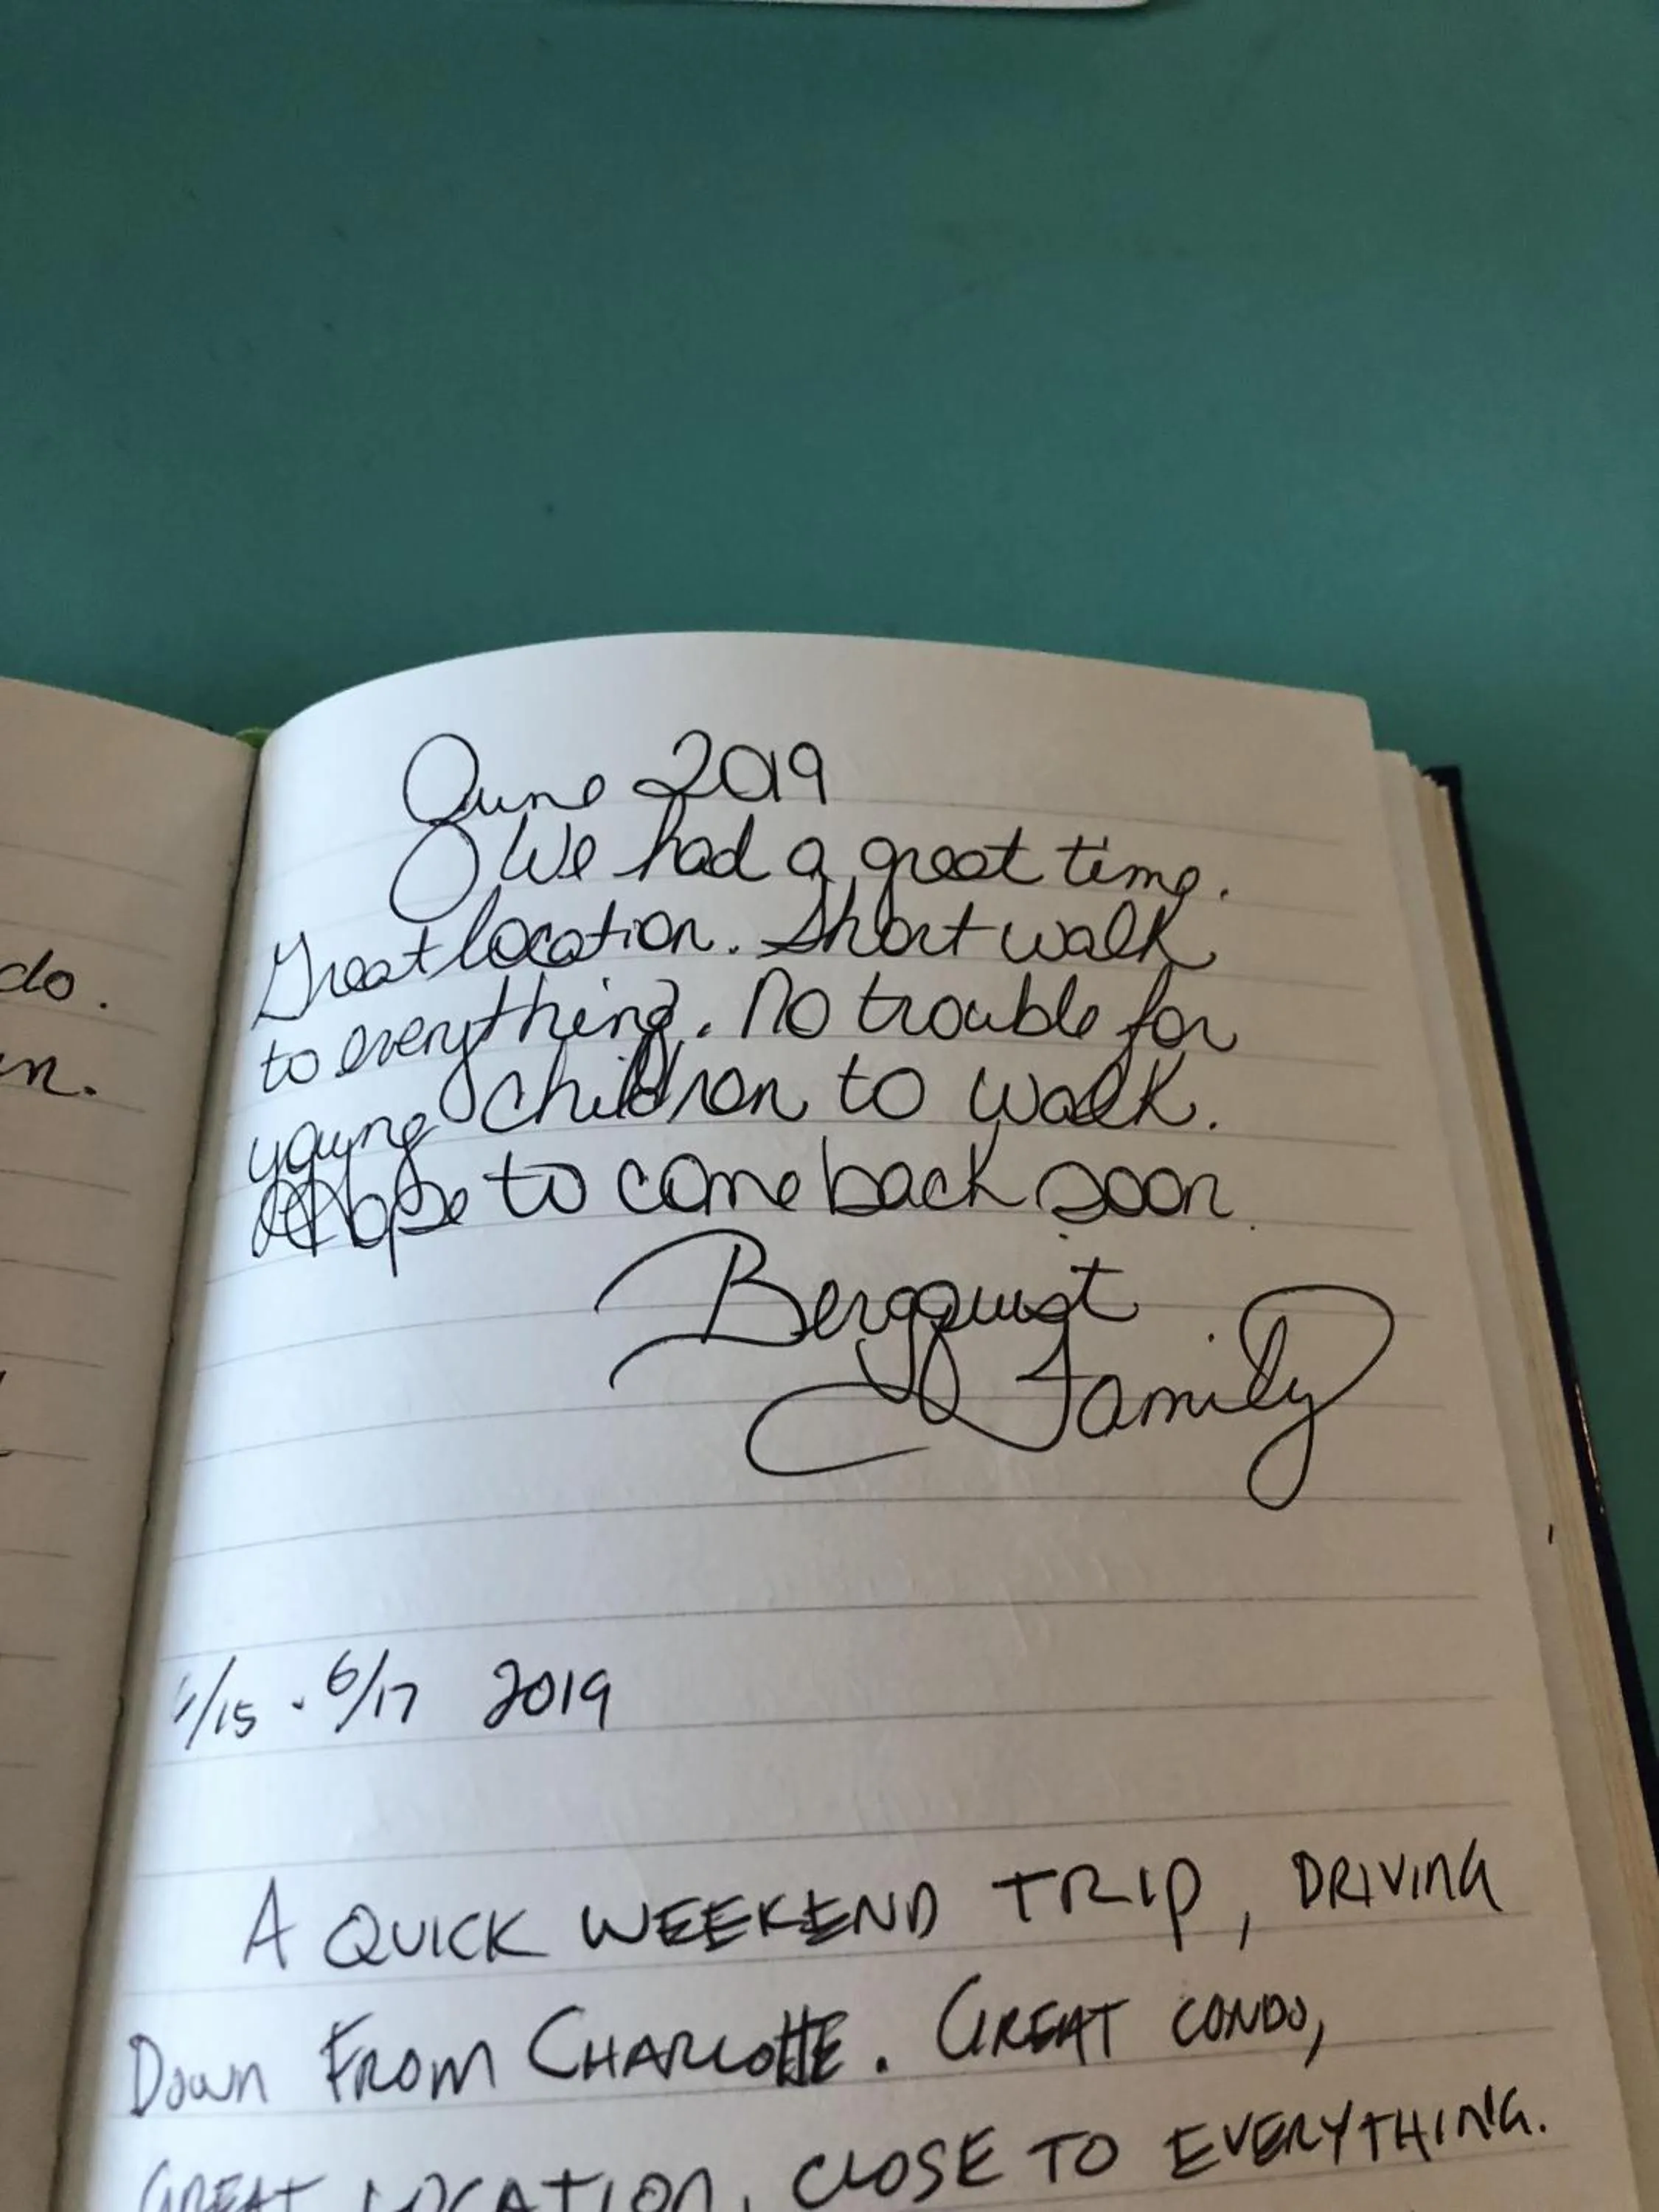 do.
n.
June 2019
We had a great time.
Great location. Short walk
to everything. No trouble for
young children to walk.
Hope to come back soon.
Bergquist
Family
/15 - 6/17 2019
A QUICK WEEKEND TRIP, DRIVING
DOWN FROM CHARLOTTE. GREAT CONDO,
GREAT LOCATION, CLOSE TO EVERYTHING.